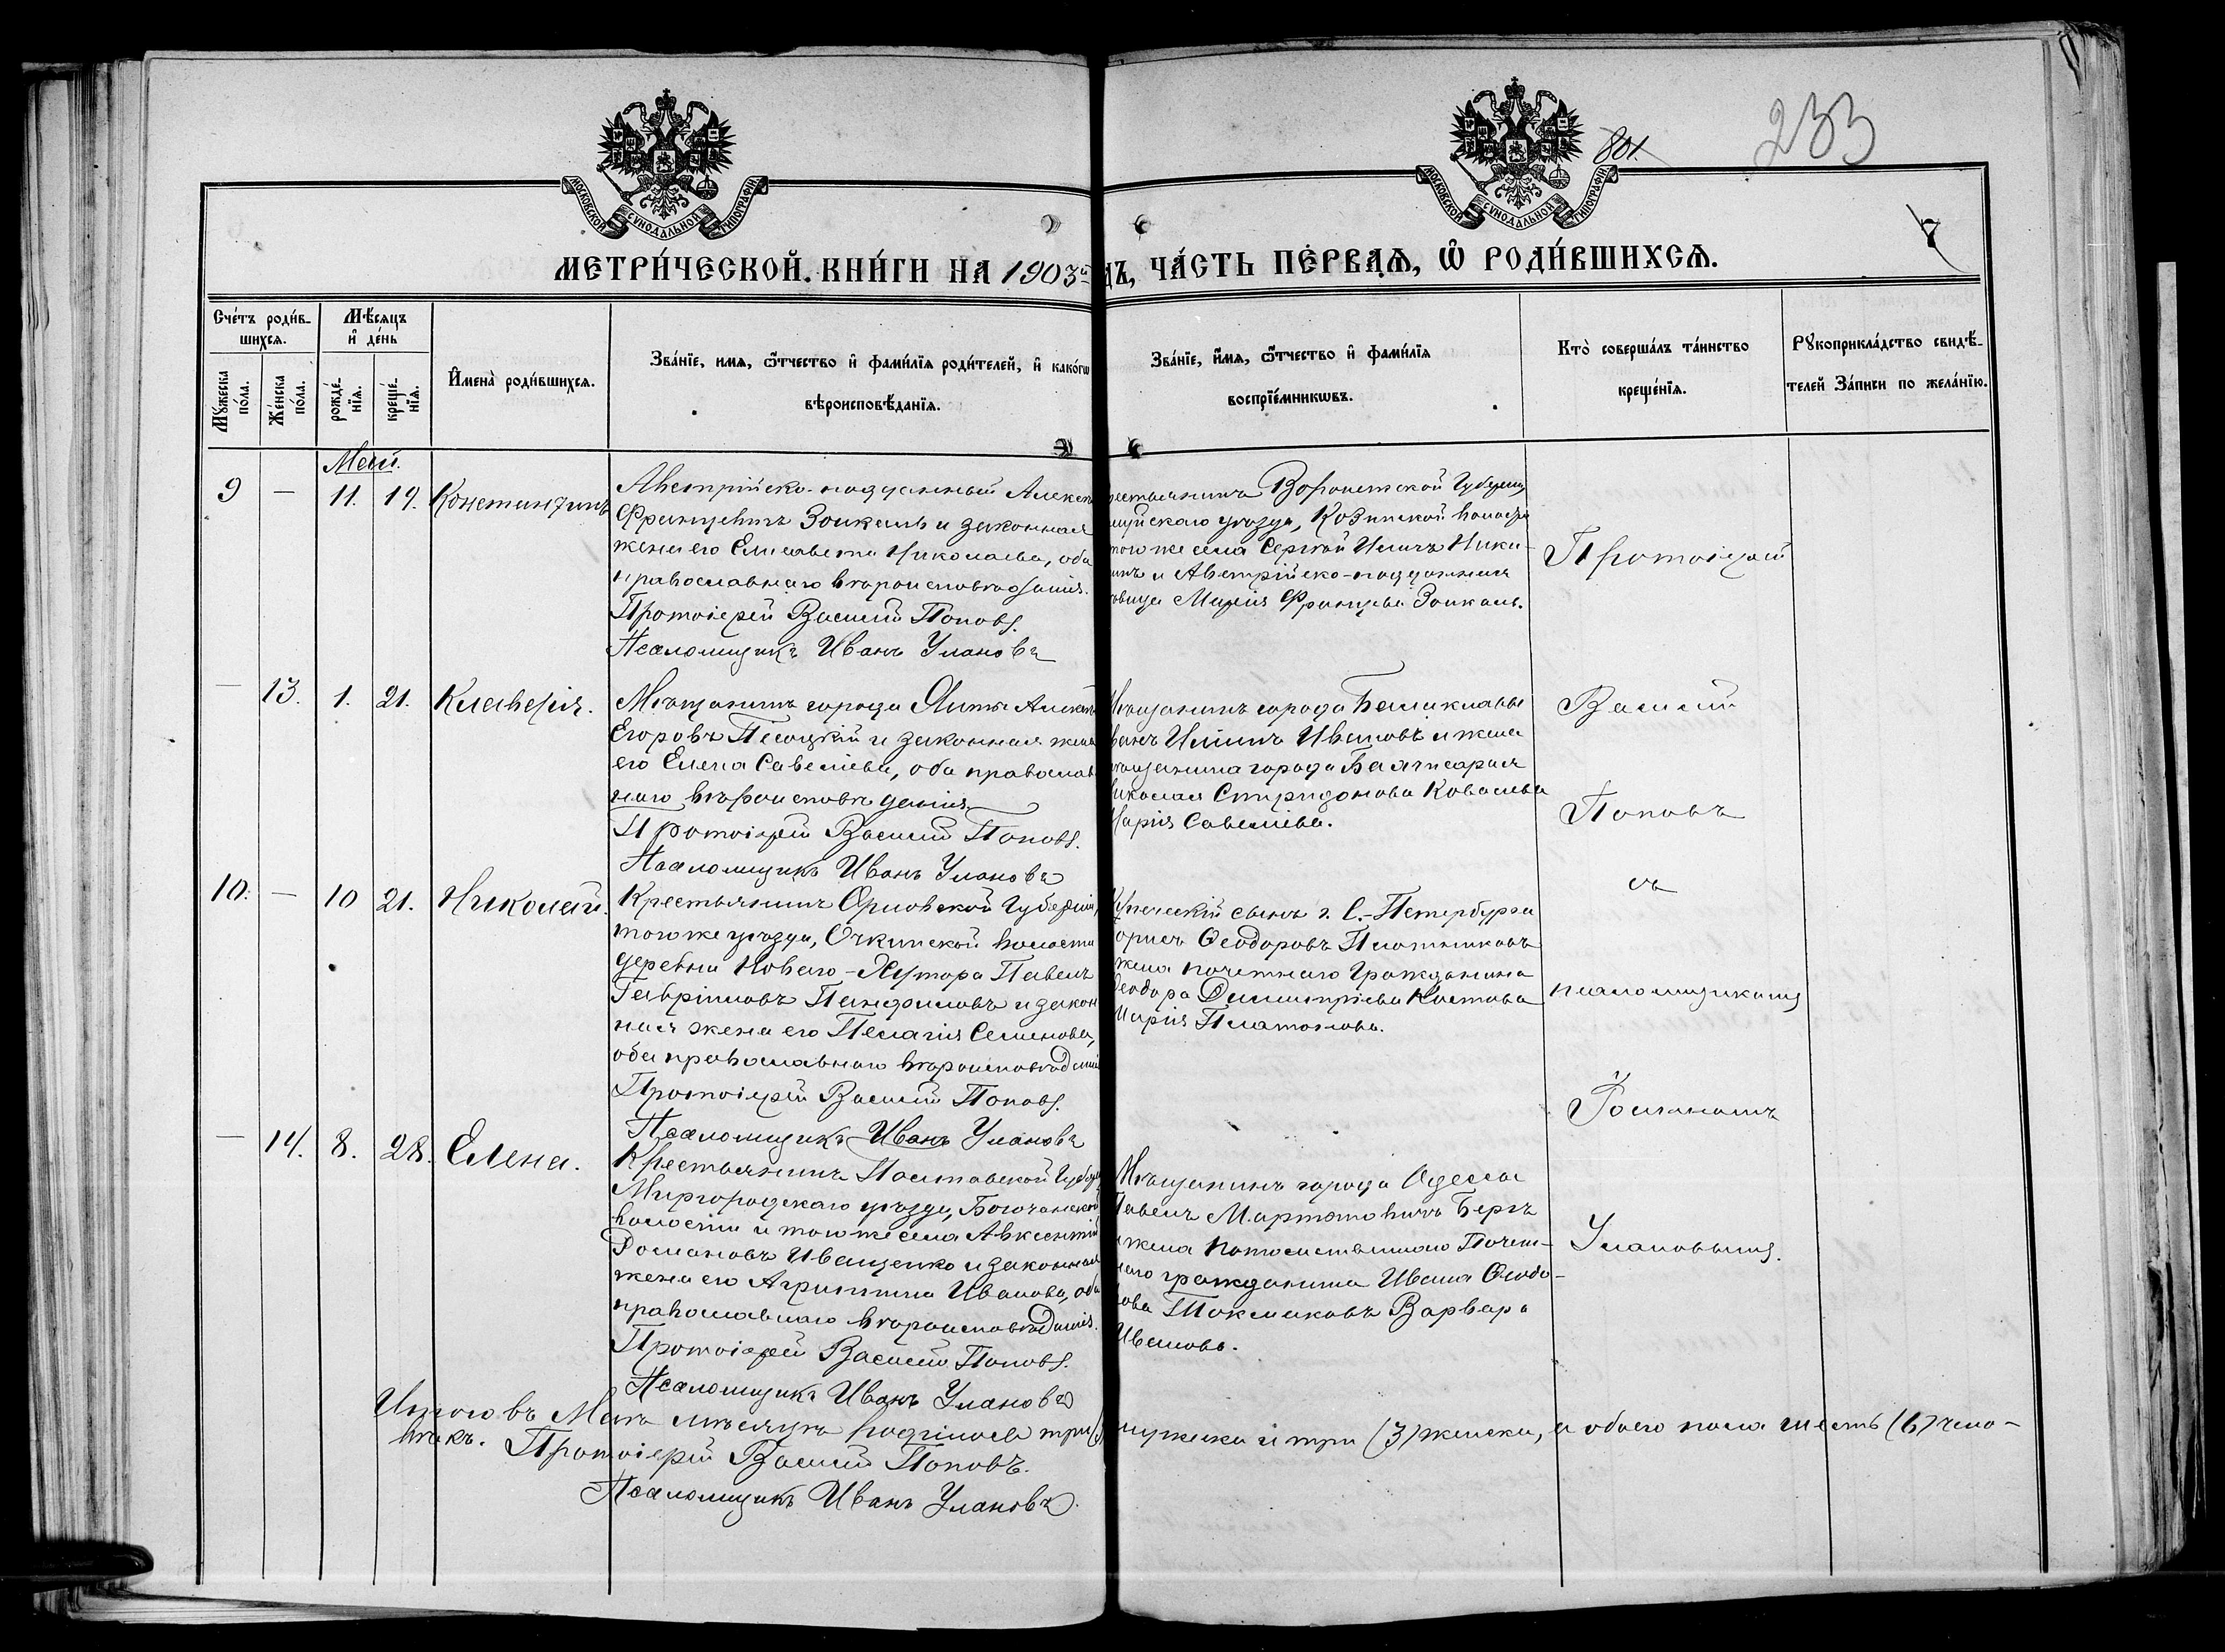 801.
233
7
МОСКОВСКОЙ СѴНОДАЛЬНОЙ ТИПОГРАФІИ
МОСКОВСКОЙ СѴНОДАЛЬНОЙ ТИПОГРАФІИ
МЕТРИ́ЧЕСКОЙ КНИ́ГИ НА 1903й
ДЪ, ЧА́СТЬ ПЕ́РВАѦ, Ѡ РОДИ́ВШИХСѦ.
Сче́тъ роди́в-
шихсѧ.
Мѣ́сѧцъ
и҆ де́нь
Мꙋ́жеска
по́ла.
Же́нска
по́ла.
рожде́-
нїѧ.
креще́-
нїѧ.
И҆мена̀ роди́вшихсѧ.
Зва́нїе, имѧ, ѻ҆́тчество и҆ фами́лїѧ роди́телей, и҆ како́гѡ
вѣроисповѣ́данїѧ.
Зва́нїе, и҆́мѧ, ѻ҆́тчество и҆ фами́лїѧ
воспрїе́мникѡвъ.
Кто̀ соверша́лъ та́инство
креще́нїѧ.
Рꙋкоприкла́дство свидѣ́-
телей За́писи по жела́нїю.
Май.
9 — 11. 19. Константинъ
Австрійско-подданный Алекс
Францевичъ Зоикаль и законная
жена его Елисавета Николаева, оба
православнаго вѣроисповѣданія.
Протоіерей Василій Поповъ.
Псаломщикъ Иванъ Улановъ
рестьянинъ Воронежской Губерніи,
уѣзда, Козинской волости
того же села Сергѣй Ильичъ Ники-
инъ и Австрійско-подданная
вица Марія Францева Зоикаль.
Протоіерей
— 13. 1. 21. Клавдія.
Мѣщанинъ города Ялты Алекс
Егоровъ Песоцкій и законная жена
его Елена Савеліева, оба православ
наго вѣроисповѣданія
Протоіерей Василій Поповъ.
Псаломщикъ Иванъ Улановъ
ѣщанинъ города Балаклавы
ванъ Ильинъ Ивановъ и жена
ѣщанина города Бахчисарая
иколая Спиридонова Ковалева
арія Савеліева.
Василій
Поповъ
10. — 10 21. Николай.
Крестьянинъ Орловской Губерніи,
того же уѣзда, Очкинской волости
деревни Новаго-Хутора Павелъ
Гавріиловъ Панфиловъ и закон
ная жена его Пелагія Семенова,
оба православнаго вѣроисповѣданія
Протоіерей Василій Поповъ.
Псаломщикъ Иванъ Улановъ
упеческій сынъ г. С.-Петербурга
орисъ Ѳеодоровъ Плотниковъ
жена почетнаго Гражданина
еодора Димитріева Костова
Марія Платонова.
съ
псаломщикомъ
Іоанномъ
— 14. 8. 28. Елена.
Крестьянинъ Полтавской Губерн
Миргородскаго уѣзда, Богачанской
волости и того же села Авксентій
Романовъ Иващенко и законная
жена его Агриппина Иванова, оба
православнаго вѣроисповѣданія.
Протоіерей Василій Поповъ.
Псаломщикъ Иванъ Улановъ
Мѣщанинъ города Одессы
Павелъ Мартыновичъ Бергъ
жена Потомственнаго Почет-
наго гражданина Ивана Ѳеодо-
ова Токмаковъ Варвара
Иванова.
Улановымъ.
Итого въ Маѣ мѣсяцѣ родилось три мужска и три (3) женска, а обоего пола шесть (6) чело-
вѣкъ. Протоіерей Василій Поповъ.
Псаломщикъ Иванъ Улановъ.